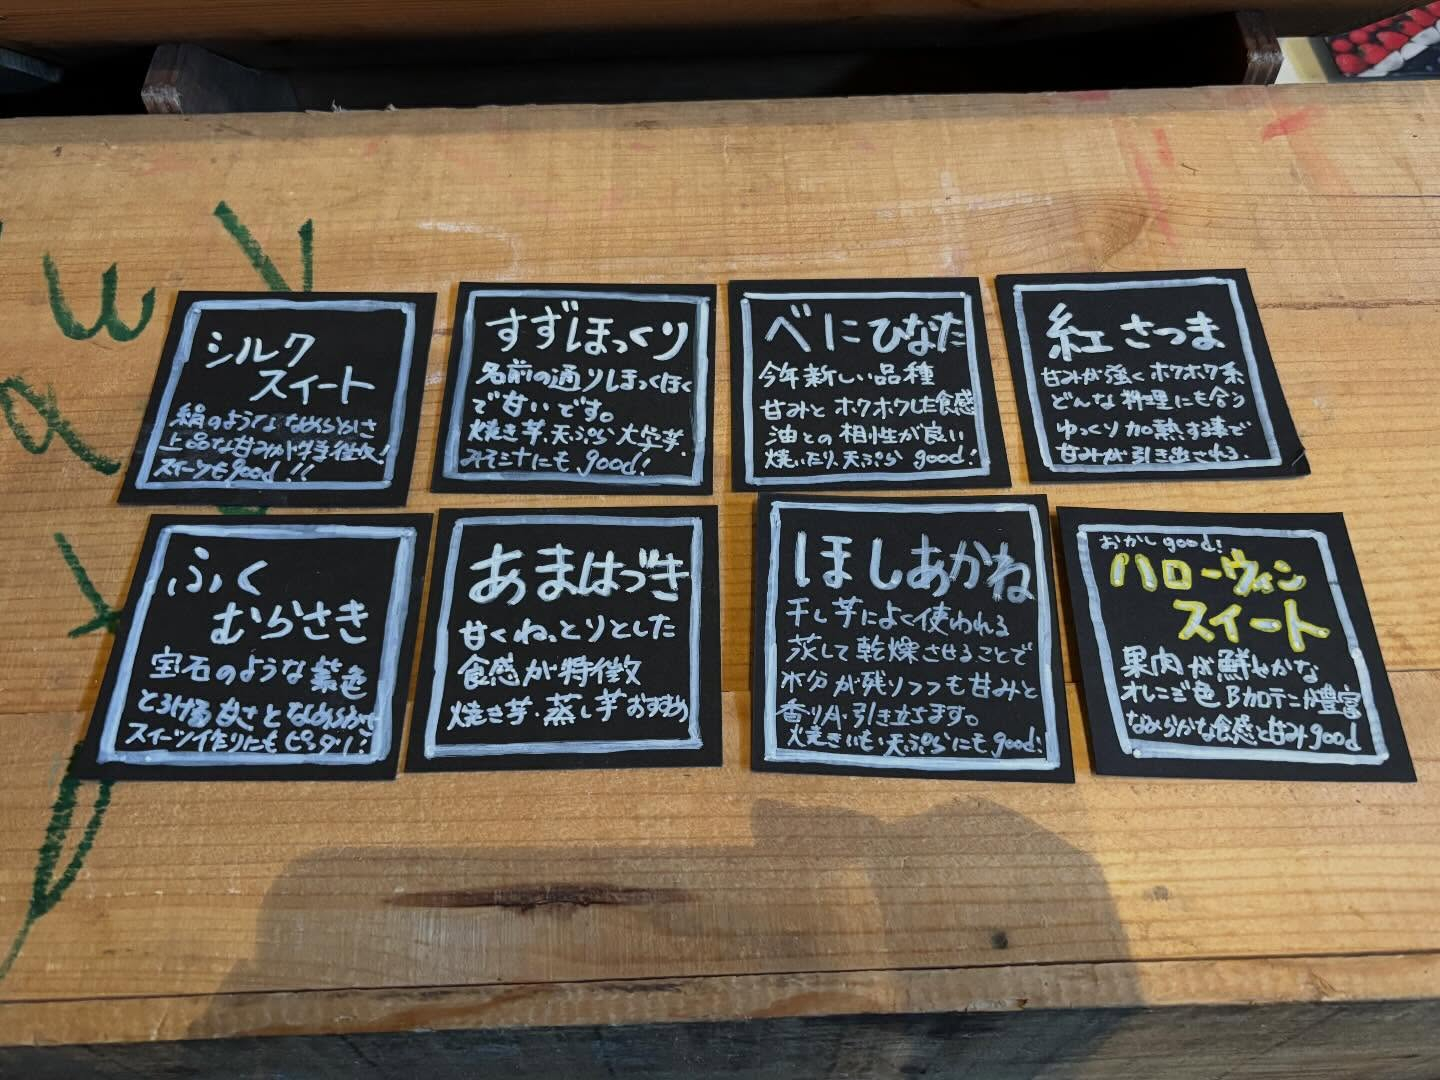 シルク
スイート
絹のようななめらかさ
上品な甘みが特徴!
スイーツもgood!!
すずほっくり
名前の通りほっくほく
で甘いです。
焼き芋、天ぷら大学芋、
みそ汁にも good!
べにひなた
今年新しい品種
甘みとホクホクした食感
油との相性が良い
焼いたり、天ぷら good!
紅さつま
甘みが強くホクホク系
どんな料理にも合う
ゆっくり加熱する事で
甘みが引き出される。
ふく
むらさき
宝石のような紫色
とろける甘さとなめらかさ
スイーツ作りにもピッタリ!
あまはづき
甘くねっとりとした
食感が特徴
焼き芋・蒸し芋おすすめ
ほしあかね
干し芋によく使われる
蒸して乾燥させることで
水分が残りつつも甘みと
香りが引き立ちます。
焼きいも・天ぷらにも good!
おかし good!
ハローウィン
スイート
果肉が鮮やかな
オレンジ色 βカロテンが豊富
なめらかな食感と甘みgood